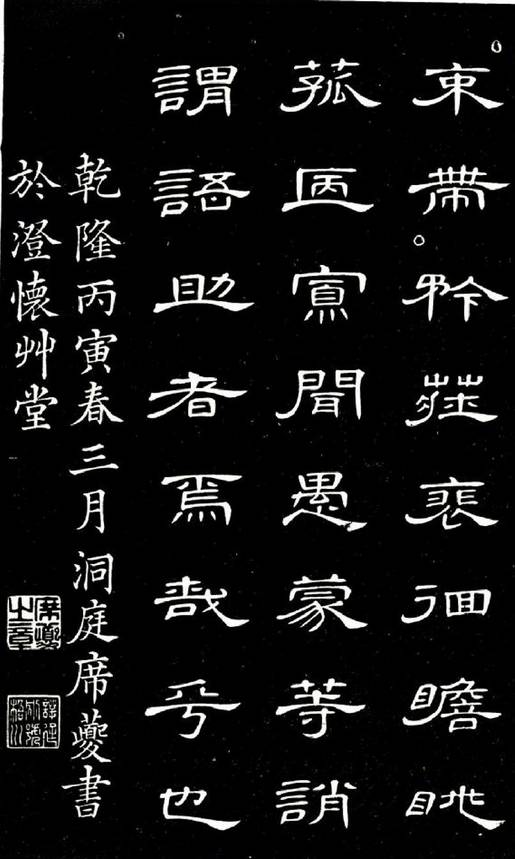 束帶矜莊裵徊瞻眺
菰㔷寡聞愚蒙等誚
謂語助者焉哉乎也
乾隆丙寅春三月洞庭席蘷書
於澄懷艸堂
席夔
之章